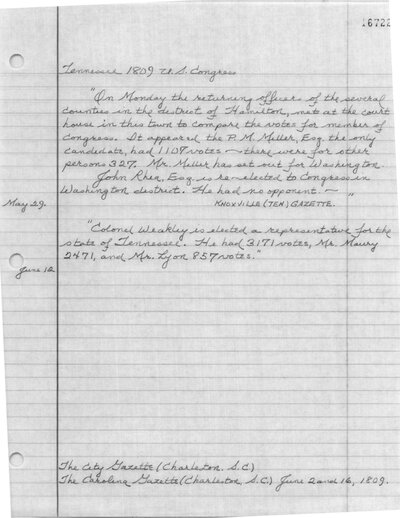 16722
Tennessee 1809 U.S. Congress
"On Monday the returning officers of the several
counties in the district of Hamilton, met at the court
house in this town to compare the votes for member of
Congress. It appeared the P. M. Miller, Esq. the only
candidate, had 1107 votes - there were for other
persons 327. Mr. Miller has set out for Washington.
John Rhea, Esq. is re-elected to Congress in
Washington district. He had no opponent. - "
May 29. KNOXVILLE (TEN) GAZETTE.
"Colonel Weakley is elected a representative for the
state of Tennessee. He had 3171 votes, Mr. Maury
2471, and Mr. Lyon 857 votes."
June 12
The City Gazette (Charleston, S.C.)
The Carolina Gazette (Charleston, S.C.) June 2 and 16, 1809.